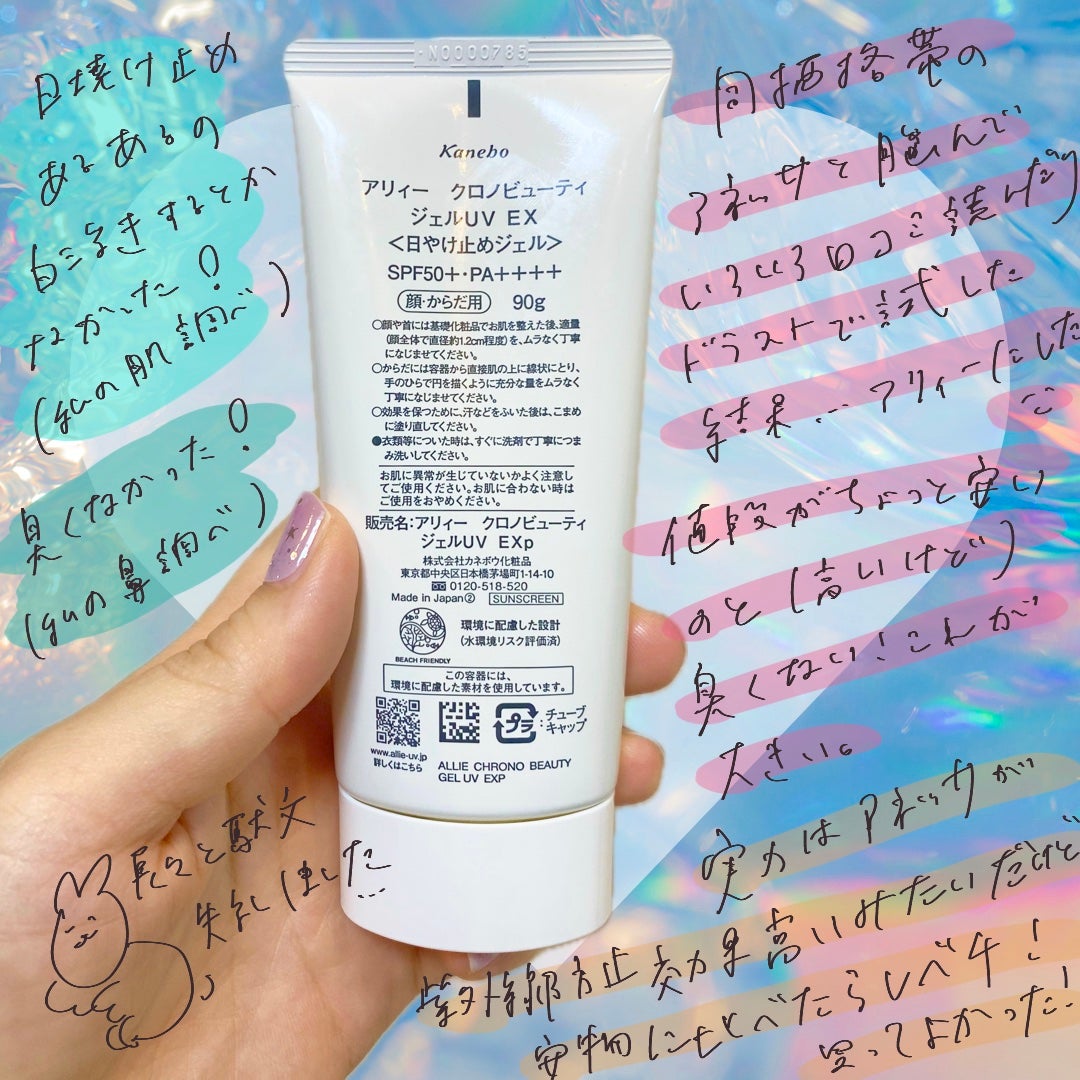 日焼け止め
あるあるの
白浮きするとか
なかった!
(guの肌調べ)
臭くなかった!
(guの鼻調べ)
N0000785
Kanebo
アリィー クロノビューティ
ジェルUV EX
<日やけ止めジェル>
SPF50+・PA++++
顔・からだ用 90g
○顔や首には基礎化粧品でお肌を整えた後、適量
(顔全体で直径約1.2cm程度)を、ムラなく丁寧
になじませてください。
○からだには容器から直接肌の上に線状にとり、
手のひらで円を描くように充分な量をムラなく
丁寧になじませてください。
○効果を保つために、汗などをふいた後は、こまめ
に塗り直してください。
●衣類等についた時は、すぐに洗剤で丁寧につま
み洗いしてください。
お肌に異常が生じていないかよく注意し
てご使用ください。お肌に合わない時は
ご使用をおやめください。
販売名:アリィー クロノビューティ
ジェルUV EXp
株式会社カネボウ化粧品
東京都中央区日本橋茅場町1-14-10
0120-518-520
Made in Japan② SUNSCREEN
環境に配慮した設計
(水環境リスク評価済)
BEACH FRIENDLY
この容器には、
環境に配慮した素材を使用しています。
プラ :チューブ
キャップ
www.allie-uv.jp
詳しくはこちら
ALLIE CHRONO BEAUTY
GEL UV EXP
同価格帯の
アネッサと悩んで
いろいろ口コミ読んだり
ドラストで試した
結果…アリィーにした
値段がちょっと安い
のと(高いけど)
臭くない!これが
大きい。
実力はアネッサが
紫外線防止効果高いみたいだけど
安物にもとべたらレベチ!
買ってよかった!
長々と駄文
失礼しました…